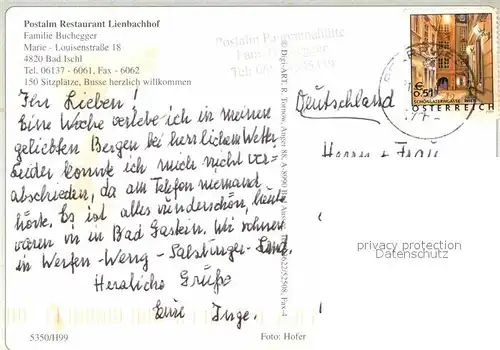 Postalm Restaurant Lienbachhof
Familie Buchegger
Marie - Louisenstraße 18
4820 Bad Ischl
Tel. 06137 - 6061, Fax - 6062
150 Sitzplätze, Busse herzlich willkommen
Ihr Lieben!
Eine Woche verlebe ich in meinen
geliebten Bergen bei herrlichem Wetter.
Leider konnte ich mich nicht ver-
abschieden, da am Telefon niemand
hörte. Es ist alles wunderschön, heute
waren wir in Bad Gastein. Wir wohnen
in Werfen-Weng - Salzburger-Land.
Herzliche Grüße
Eure Inge.
5350/H99
Foto: Hofer
© Digi-ART, R. Tornow, Anger 38, A-8990 Bad Aussee
Postalm
Deutschland
Herrn + Frau
€ 0,51
SCHÖNLATERNGASSE WIEN
ÖSTERREICH
privacy protection
Datenschutz